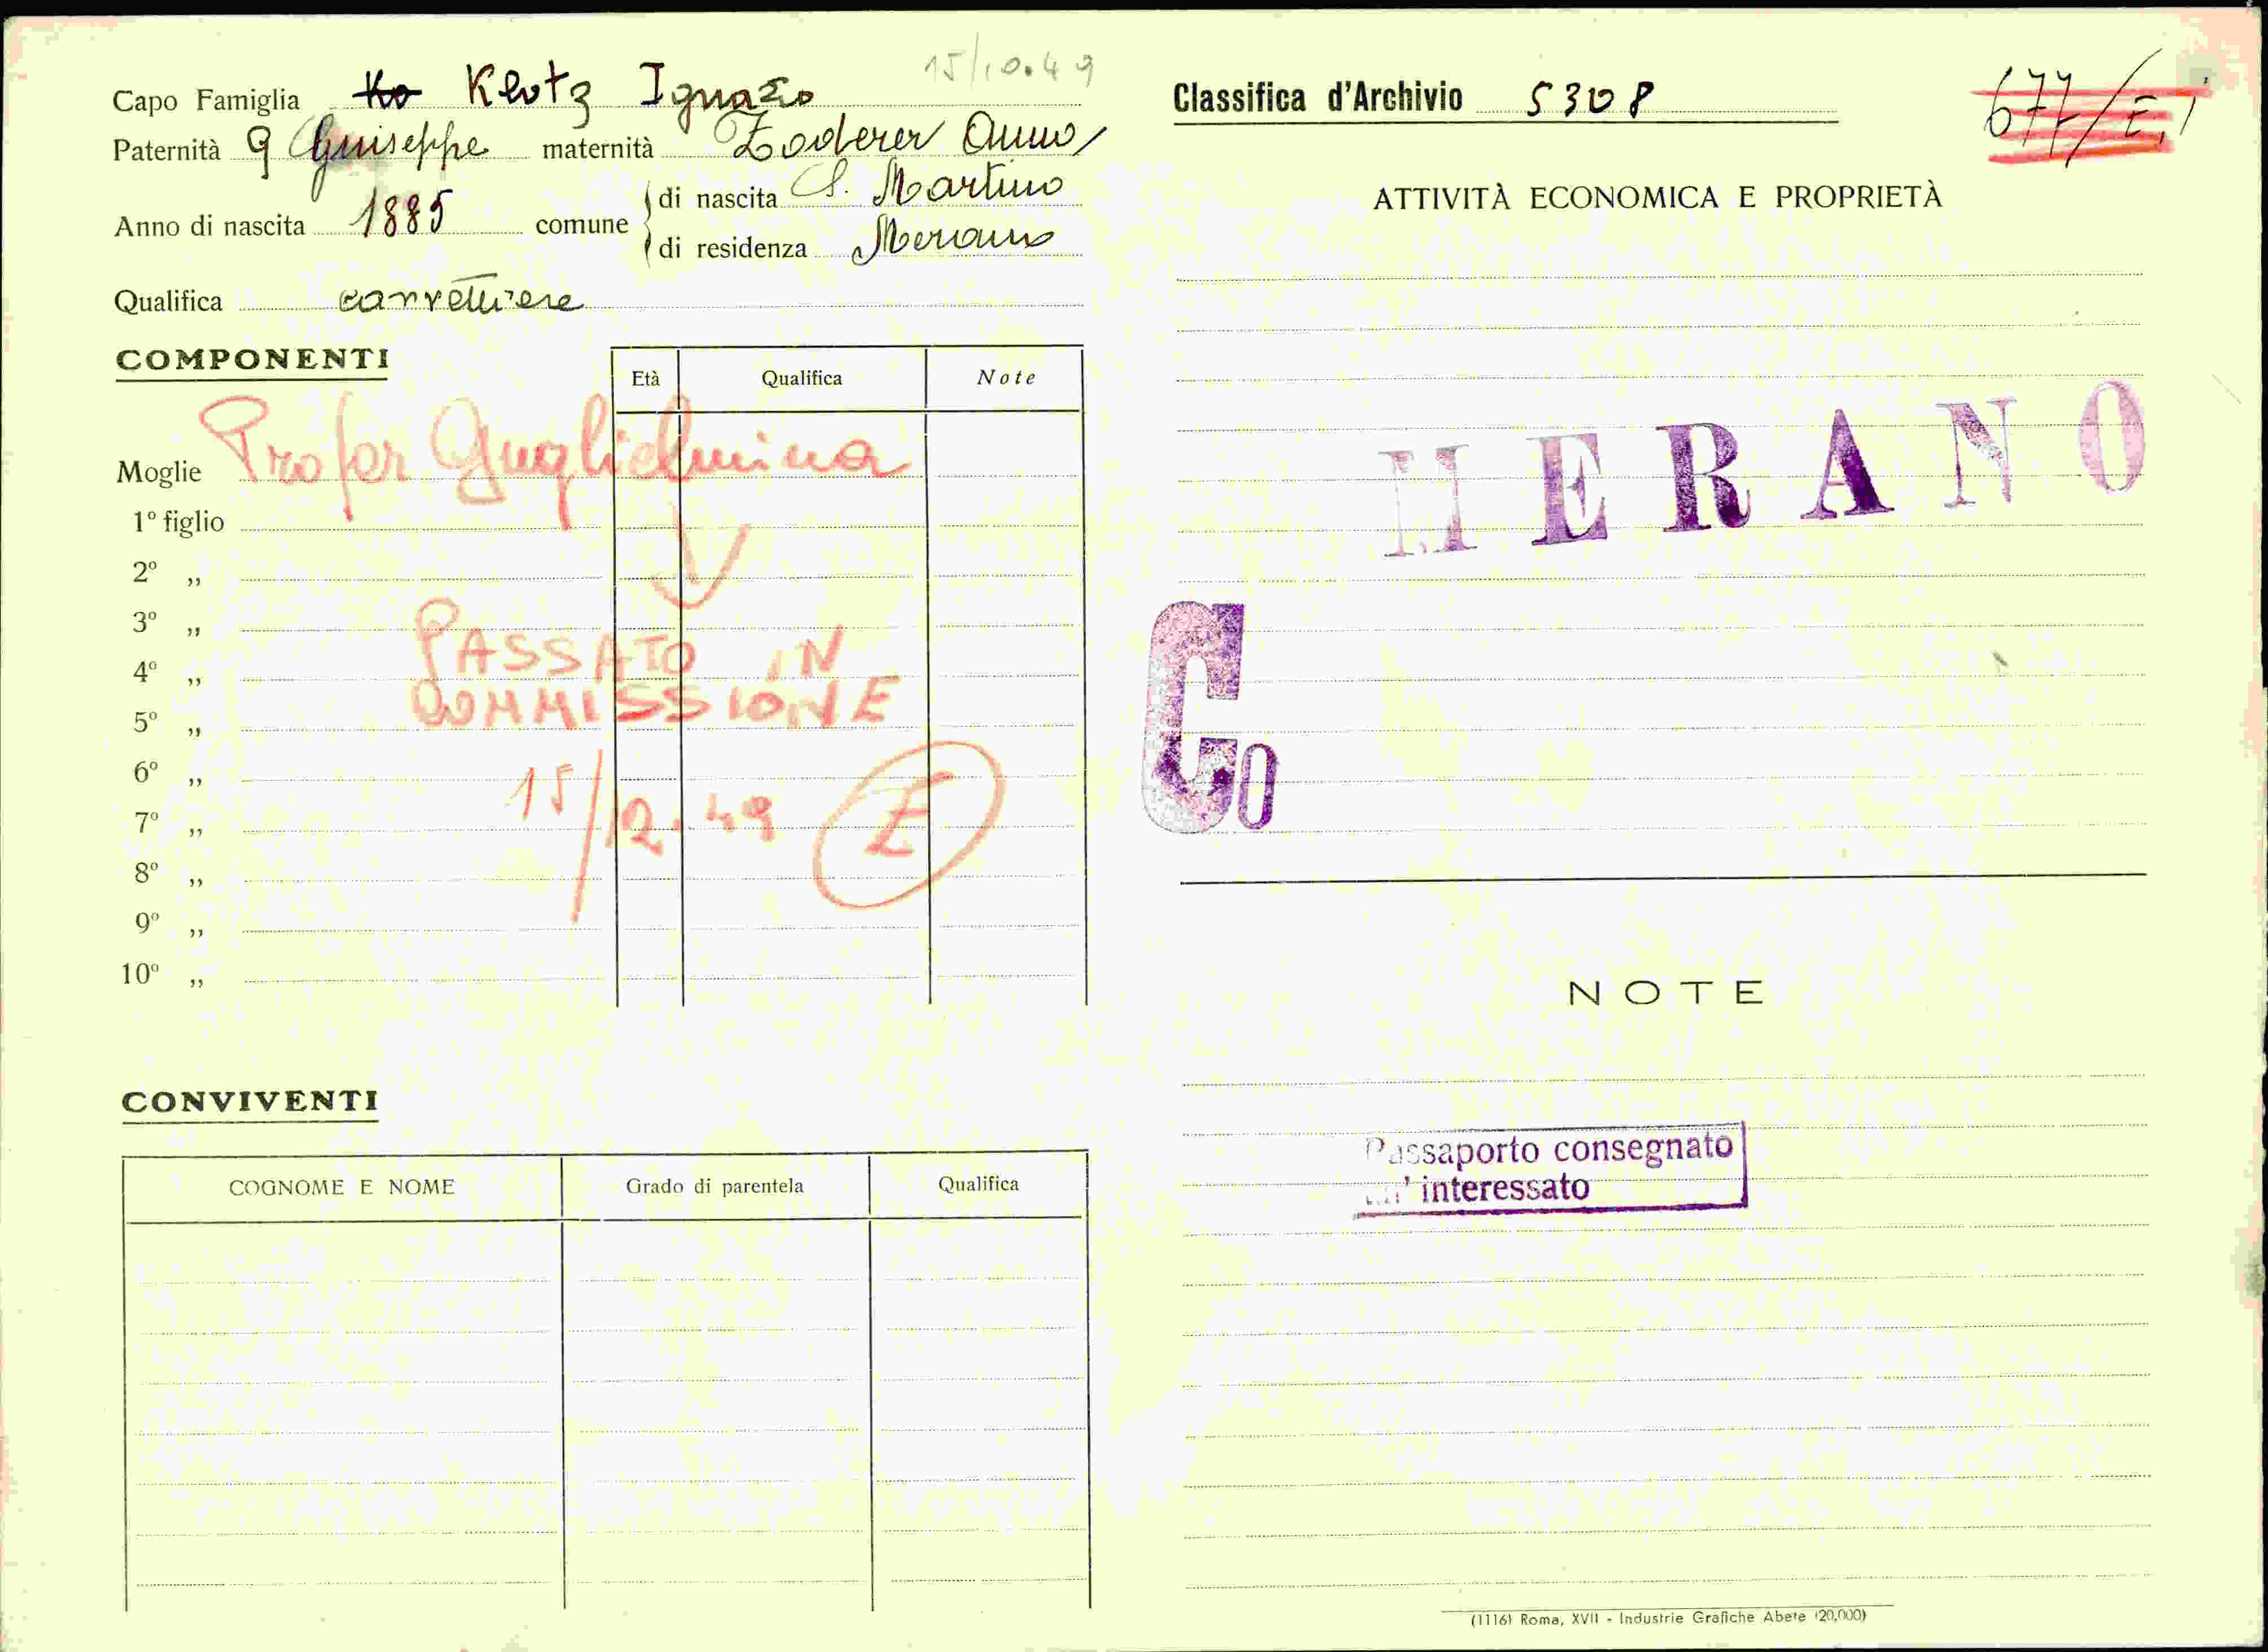 15/10.49
Capo Famiglia Ko Klotz Ignazio
Paternità q Giuseppe maternità Zoderer Anna
Anno di nascita 1885 comune di nascita S. Martino
di residenza Merano
Qualifica carrettiere
COMPONENTI
Età Qualifica Note
Moglie Profer Guglielmina
1º figlio
2º „
3º „
4º „
5º „
6º „
7º „
8º „
9º „
10º „
PASSATO IN
COMMISSIONE
15/12.49 E
CONVIVENTI
COGNOME E NOME Grado di parentela Qualifica
Classifica d'Archivio 5308
677/E.
ATTIVITÀ ECONOMICA E PROPRIETÀ
MERANO
Co
NOTE
Passaporto consegnato
all' interessato
(1116) Roma, XVII - Industrie Grafiche Abete (20.000)